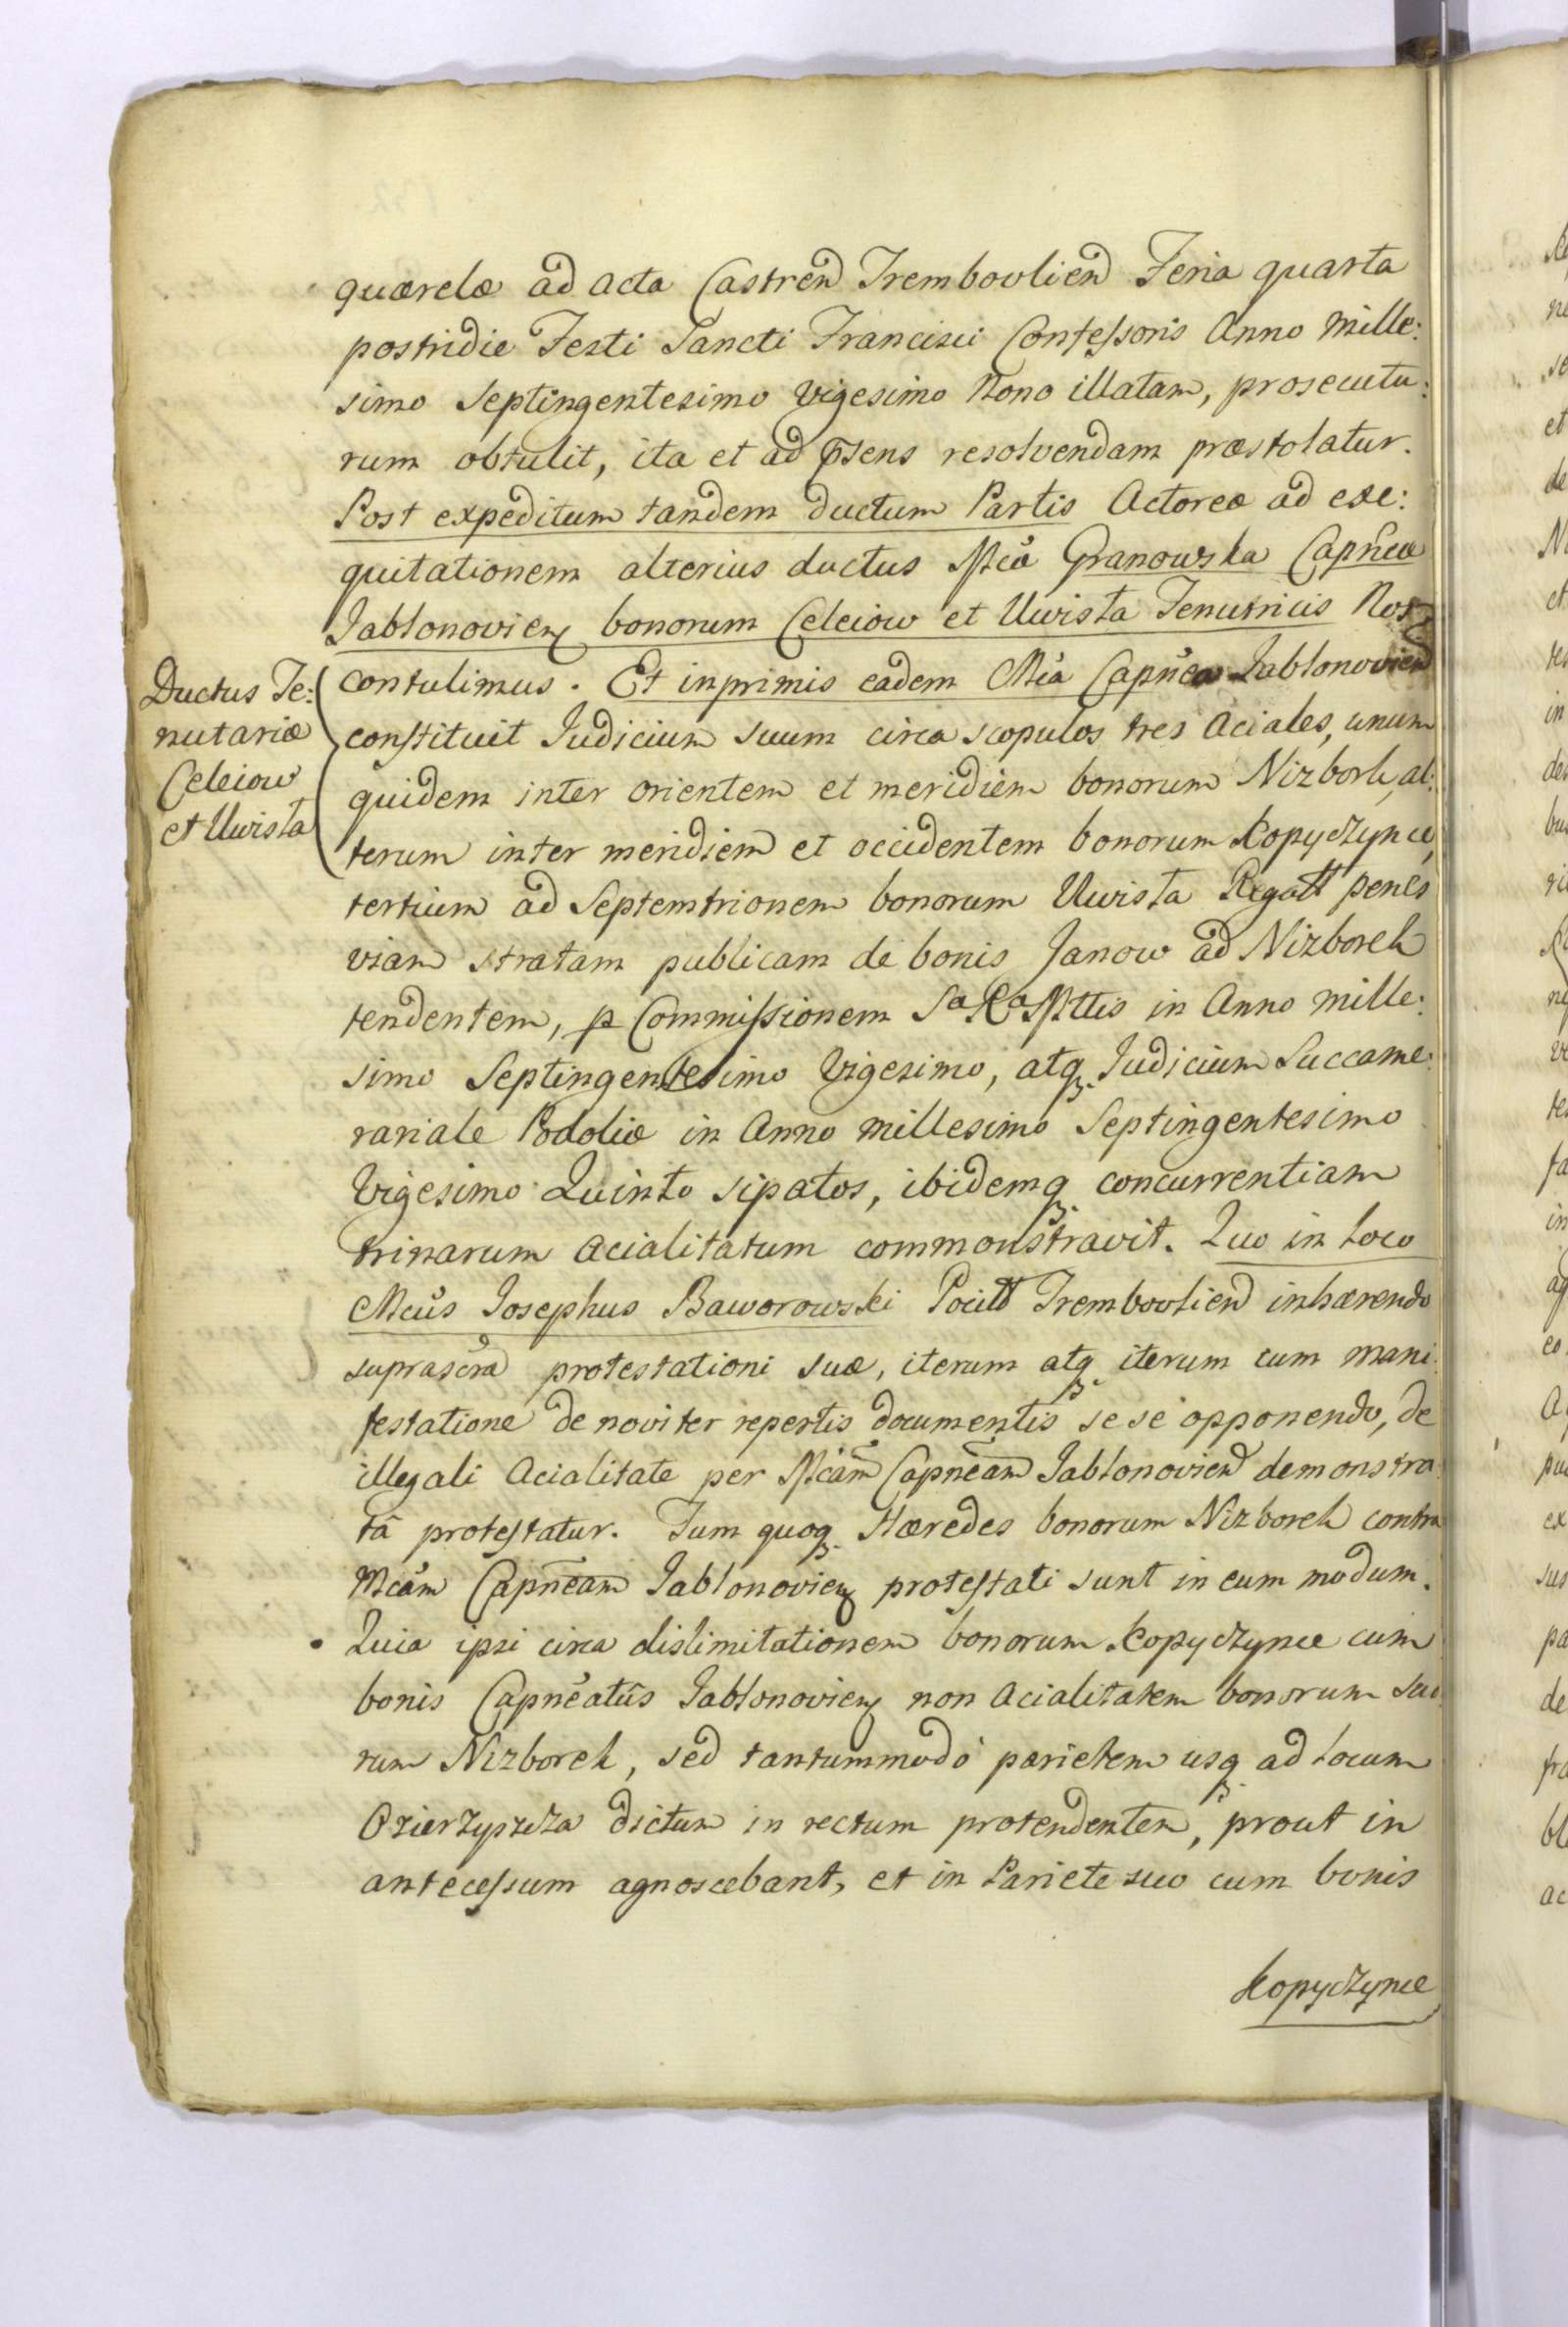 quærelæ ad acta Castren̄d Trembovlien̄d Feria quarta
postridie Festi Sancti Francisci Confessoris Anno mille:
simo Septingentesimo Vigesimo Nono illatam, prosecutu:
rum obtulit, ita et ad p̄sens resolvendam præstolatur.
Post expeditum tandem ductum Partis Actoreæ ad exe:
quitationem alterius ductus Mcæ Granowska Capn̄eæ
Jablonovien bonorum Celeiow et Uwista Tenutricis Nos
Ductus Te:
nutariæ
Celeiow
et Uwista
contulimus. Et inprimis eadem Mca Capnea Jablonovien
constituit Judicium suum circa scopulos tres Aciales, unum
quidem inter orientem et meridiem bonorum Nizborh, al:
terum inter meridiem et occidentem bonorum Kopyczynce,
tertium ad Septemtrionem bonorum Uwista Regal penes
viam stratam publicam de bonis Janow ad Nizboreh
tendentem, p Commissionem Sa Ra Mttis in Anno mille:
simo Septingentesimo Vigesimo, atq Judicium Succame:
rariale Podoliæ in Anno millesimo Septingentesimo
Vigesimo Quinto sipatos, ibidemq concurrentiam
trinarum acialitatum commonstravit. Quo in loco
Mcus Josephus Baworowski Pocill Trembovlien inhærendo
suprascra protestationi suæ, iterum atq iterum cum mani:
festatione de noviter repertis documentis sese opponendo, de
illegali Acialitate per Mcam Capneam Jablonovien demonstra:
tâ protestatur. Tum quoq Hæredes bonorum Nizboreh contra
Mcam Capneam Jablonovien protestati sunt in eum modum.
Quia ipsi circa dislimitationem bonorum Kopyczynce cum
bonis Capneatus Jablonovien non Acialitatem bonorum suo:
rum Nizboreh, sed tantummodò parietem usq ad locum
Ozierzyszcza dictum in rectum protendentem, prout in
antecessum agnoscebant, et in Pariete suo cum bonis
Kopyczynce